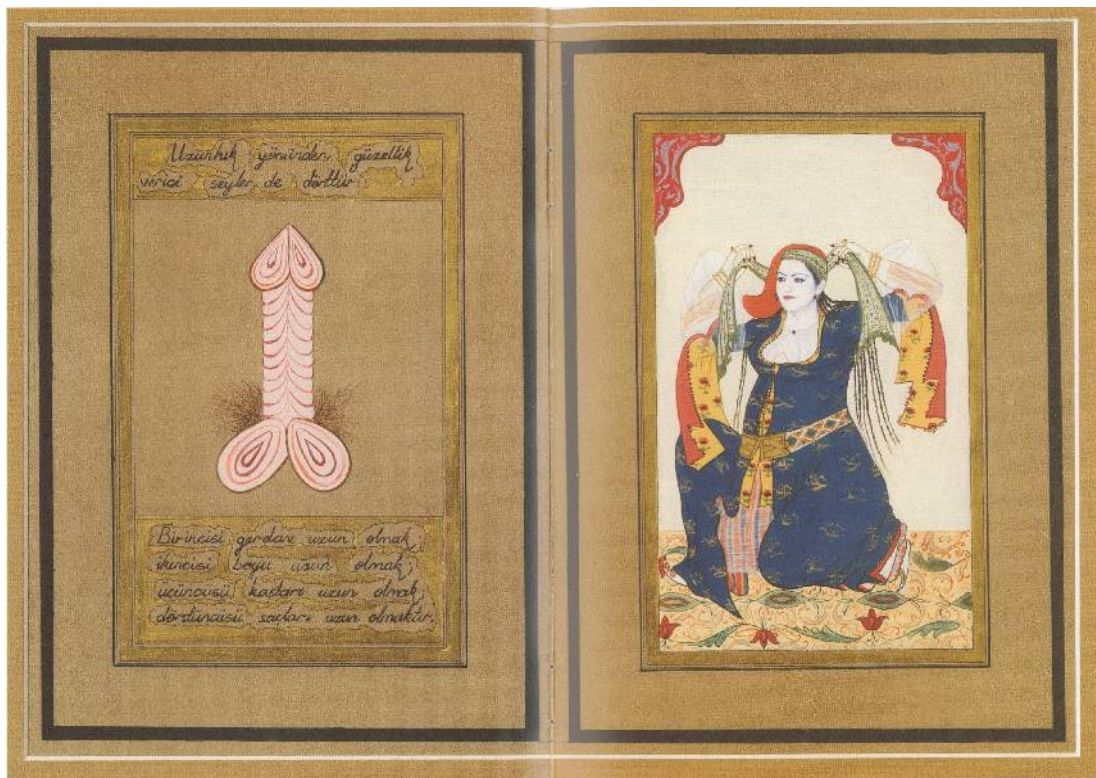 Uzunluk yönünden güzellik
verici şeyler de dörttür
Birincisi gerdanı uzun olmak,
ikincisi boyu uzun olmak,
üçüncüsü kaşları uzun olmak,
dördüncüsü saçları uzun olmaktır.